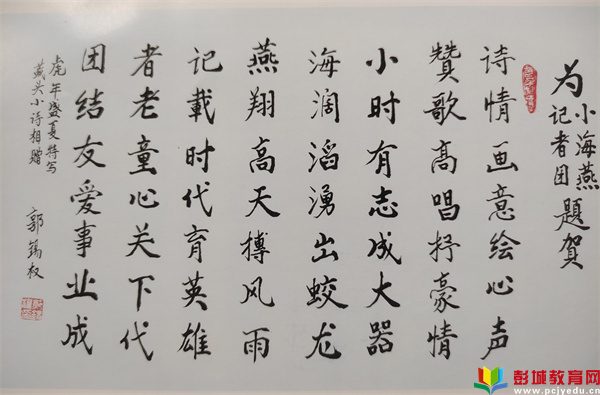 为小海燕
记者团题贺
诗情画意绘心声
赞歌高唱抒豪情
小时有志成大器
海阔滔湧出蛟龙
燕翔高天搏风雨
记载时代育英雄
者老童心关下代
团结友爱事业成
虎年盛夏特写
藏头小诗相赠
郭锡权
彭城教育网
www.pcjyedu.cn